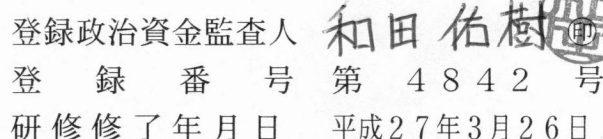 登録政治資金監査人 和田佑樹 ㊞
登録番号 第4842号
研修修了年月日 平成27年3月26日